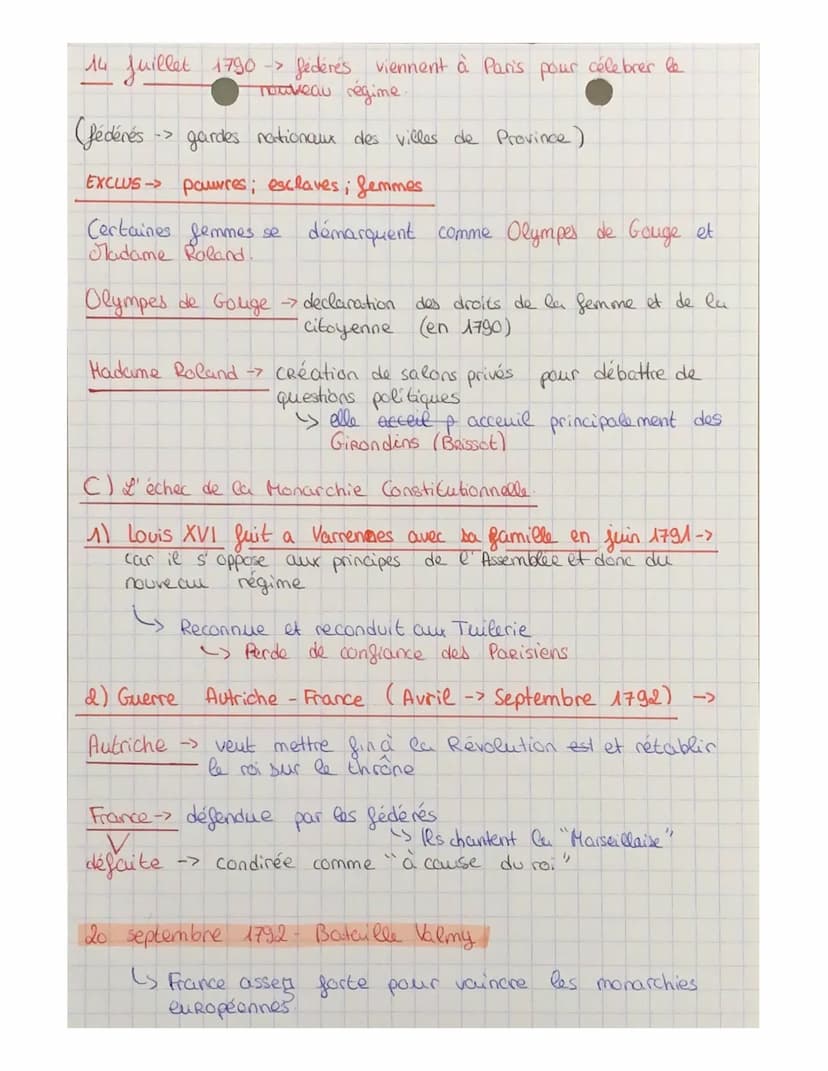 14 Juillet 1790 -> fédérés viennent à Paris pour célebrer le
nouveau régime.
(fédérés -> gardes nationaux des villes de Province)
EXCLUS -> pauvres ; esclaves ; femmes
Certaines femmes se démarquent comme Olympes de Gouge et
Madame Roland.
Olympes de Gouge -> declaration des droits de la femme et de la
citoyenne (en 1790)
Madame Roland -> création de salons privés pour débattre de
questions politiques
↳ elle acceil p acceuil principalement des
Girondins (Brissot)
C) L'échec de la Monarchie Constitutionnelle.
1) Louis XVI fuit a Varrennes avec sa famille en juin 1791 ->
car il s'oppose aux principes de l'Assemblée et donc du
nouveau régime
↳ Reconnue et reconduit aux Tuilerie
↳ Perde de confiance des Parisiens
2) Guerre Autriche - France (Avril -> Septembre 1792) ->
Autriche -> veut mettre fin à la Révolution est et rétablir
le roi sur le thrône
France -> défendue par les fédérés
↳ Ils chantent la "Marseillaise"
défaite -> condirée comme "à cause du roi"
20 septembre 1792 - Bataille Valmy
↳ France assez forte pour vaincre les monarchies
européonnes.